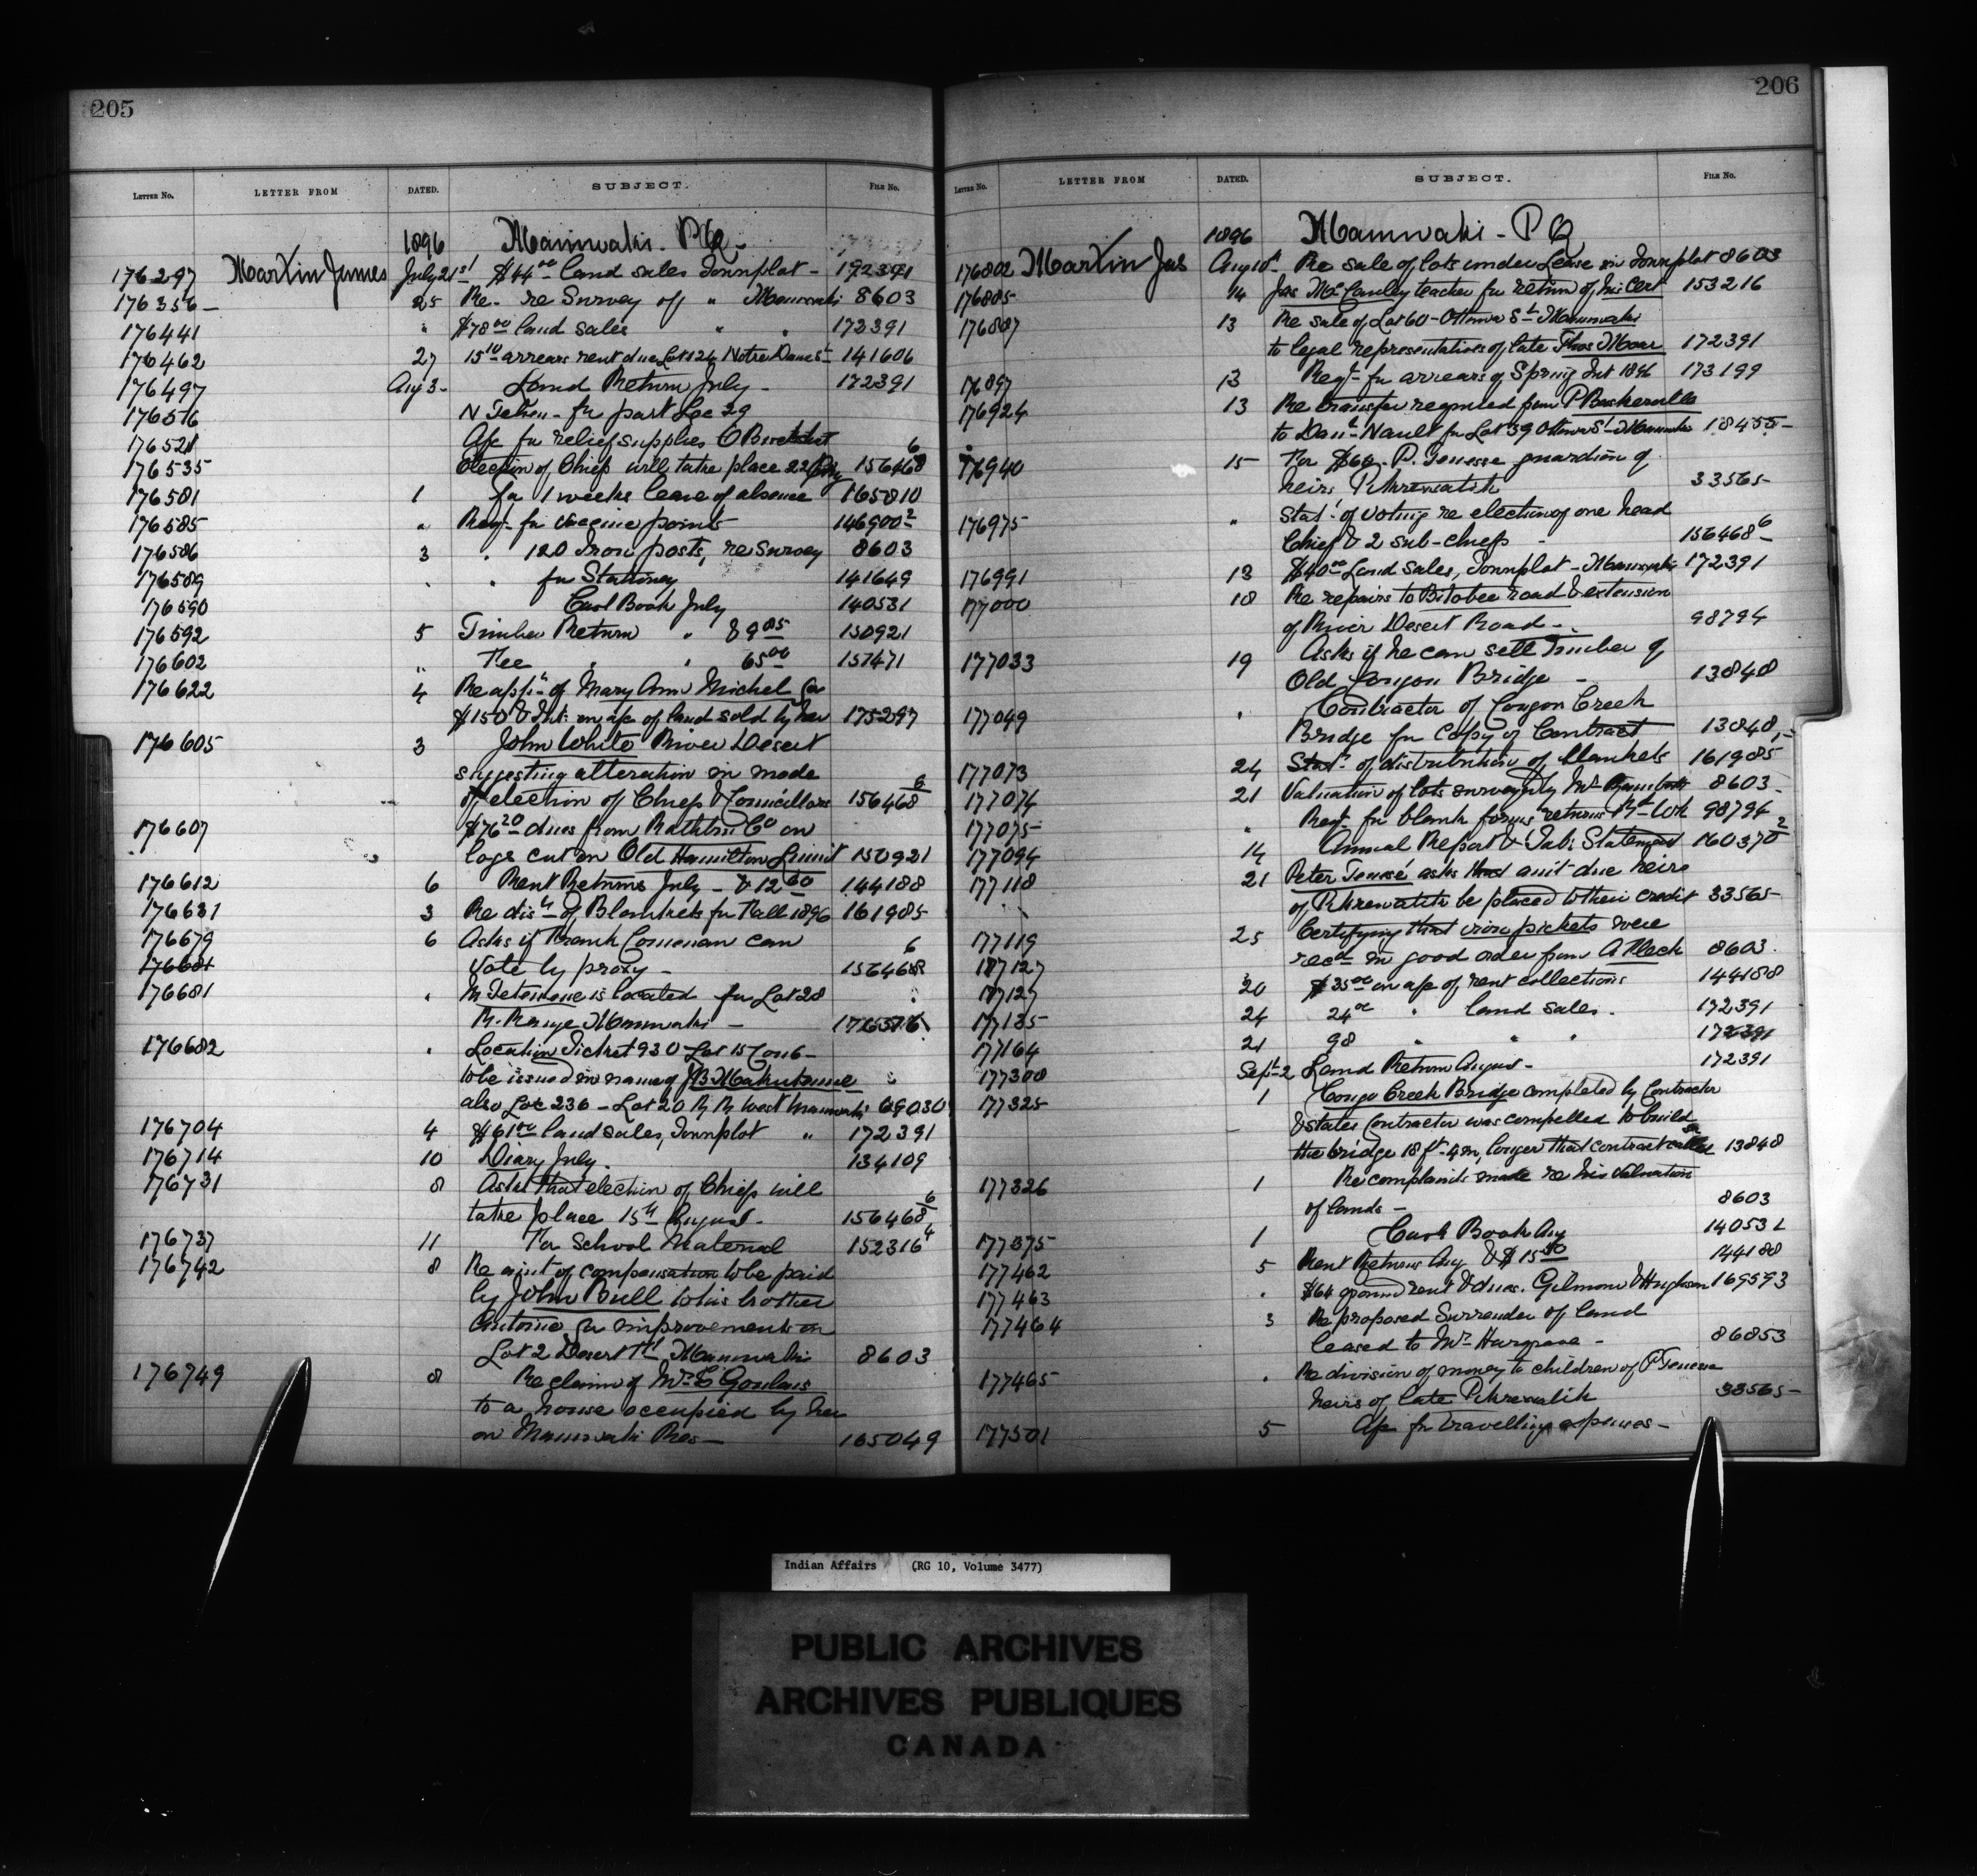 205
LETTER NO. LETTER FROM DATED. SUBJECT. FILE NO.
1896 Maniwaki - P.Q. -
176297 Martin James July 21st $44.00 land sales Townplot - 172391
176356 - 25 Re - re Survey of " Maniwaki 8603
176441 " $78.00 land sales " " 172391
176462 27 15.10 arrears rent due Lot 124 Notre Dame St 141606
176497 Aug 3 - Land Return July - 172391
176516 for part Loc 29
176521 A/c for relief supplies
176535 Election of Chiefs will take place 22 156468 6
176581 1 for 1 weeks leave of absence 165810
176585 " Reqt - for vaccine points 146900 2
176586 3 " 120 Iron posts, re Survey 8603
176589 " " for Stationery 141649
176590 Cash Book July 140531
176592 5 Timber Return " & 9.85 150921
176602 " Fee " " 65.00 157471
176622 4 Re appn of Mary Ann Michel for
$150 & Int: on a/c of land sold by her 175297
176605 3 John White River Desert
suggesting alteration in mode
of election of Chiefs & Councillors 156468 6
176607 $76.20 dues from Rathbun Co on
logs cut on Old Hamilton Limit 150921
176612 6 Rent Returns July - & 12.60 144188
176631 3 Re disn of Blankets for Fall 1896 161985
176679 6 Asks if Frank Commonan can
176681 Vote by proxy - 156468 6
176681 " is located for Lot 28
R. Range Maniwaki -
176682 " Location Ticket 930 Lot 15 Con 6 -
to be issued in name of J.B.
also Loc 236 - Lot 20 R. R. West Maniwaki 69030
176704 4 $61.00 land sales, Townplot " 172391
176714 10 Diary July. 134109
176731 8 Asks that election of Chiefs will
take place 15th August - 156468 6
176737 11 For School Material 152316 4
176742 8 Re amt of compensation to be paid
by John Bull to his brother
Antoine for improvements on
Lot 2 Desert Maniwaki 8603
176749 8 Re claim of Mrs Goulais
to a house occupied by her
on Maniwaki Res - 165049
206
LETTER NO. LETTER FROM DATED. SUBJECT. FILE NO.
1896 Maniwaki - P Q
176802 Martin Jas Aug 10th Re sale of lots under Lease in Townplot 8603
176885 14 Jas McCauley teacher for return of his Cert 153216
176887 13 Re sale of Lot 60 - Ottawa St Maniwaki
to legal representatives of late Thos Moar 172391
176897 13 Reqt - for arrears of Spring Int 1896 173199
176924 13 Re transfer required from P Baskerville
to Danl Nault for Lot 39 Ottawa St Maniwaki 18455 -
176940 15 For $60. P. Tenesse guardian of
heirs 33565 -
176975 " Stat. of voting re election of one head
Chief & 2 sub-chiefs - 156468 6
176991 18 $40.00 Land Sales, Townplot - Maniwaki 172391
177000 18 Re repairs to Bitobee road & extension
of River Desert Road - 98794
177033 19 Asks if he can sell Timber of
Old Congon Bridge - 13848
177049 " Contractor of Congon Creek
Bridge for Copy of Contract 13848
177073 24 Stat. of distribution of blankets 161985
177074 21 Valuation of lots surveyed by Mr 8603
177075 " Reqt. for blank forms returns Rd Wk 98794
177094 14 Annual Report & Tab: Statement 160370 2
177118 21 Peter Tenesse asks that amt due heirs
of be placed to their credit 33565 -
177119 25 Certifying that iron pickets were
177127 recd in good order from A Fleck 8603
177127 20 $35.00 on a/c of rent collections 144188
177135 24 24.00 " land sales. 172391
177164 21 98 " " " 172391
177300 Sept 2 Land Return August - 172391
177325 1 Congo Creek Bridge completed by Contractor
& states Contractor was compelled to build
the bridge 18 ft - 4 in, longer than contract called for 13848
177326 1 Re complaints made re his valuation
of lands - 8603
177375 1 Cash Book Aug 140531
177462 5 Rent Returns Aug & $15.50 144188
177463 " $64 ground rent & dues. Gilmour & Hughson 169593
177464 3 Re proposed Surrender of land
leased to Mr Hargrave - 86853
177465 " Re division of money to children of P Tenesse
heirs of late 33565 -
177501 5 A/c for travelling expenses -
Indian Affairs (RG 10, Volume 3477)
PUBLIC ARCHIVES
ARCHIVES PUBLIQUES
CANADA